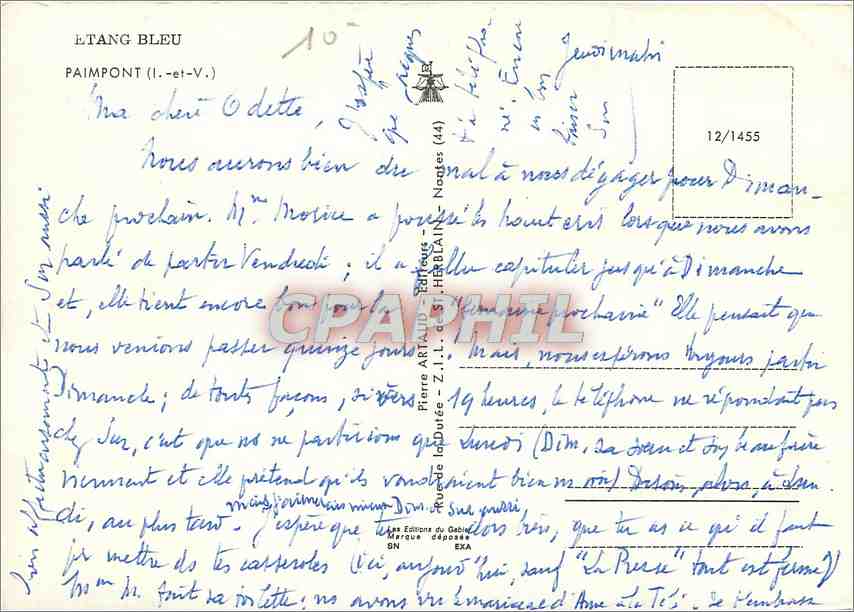 ETANG BLEU
PAIMPONT (I.-et-V.)
10-
Jeudi matin
12/1455
Ma chère Odette,
Nous aurons bien du mal à nous dégager pour Diman-
che prochain. Mme Morice a poussé les hauts cris lorsque nous avons
parlé de partir Vendredi ; il a fallu capituler jusqu'à Dimanche
et, elle tient encore bon pour la "semaine prochaine" Elle pensait que
nous venions passer quinze jours. Mais, nous espérons toujours partir
Dimanche ; de toutes façons, si vers 19 heures, le téléphone ne répondait pas
chez Sur, c'est que ns ne partirions que Lundi (Dim. sa soeur et son beau frère
viennent et elle prétend qu'ils voudraient bien ns voir) Disons alors, à Lun
di, au plus tard. J'espère que tu vas alors, que tu as ce qu'il faut
mais j'aimerais mieux Dim.
pr mettre ds tes casseroles (ici, aujourd'hui, sauf "La Presse" tout est fermé)
Mme M. fait sa toilette ; ns avons vu le mariage d'Anne à la Télé. Je t'embrasse
bien affectueusement et Sur aussi
J'espère que Jacques t'a téléphoné.
Pierre ARTAUD - Editeurs -
Rue de la Dutée - Z.I.L. de St. HERBLAIN - Nantes (44)
Les Editions du Gabier
Marque déposée
SN EXA
CPAPHIL